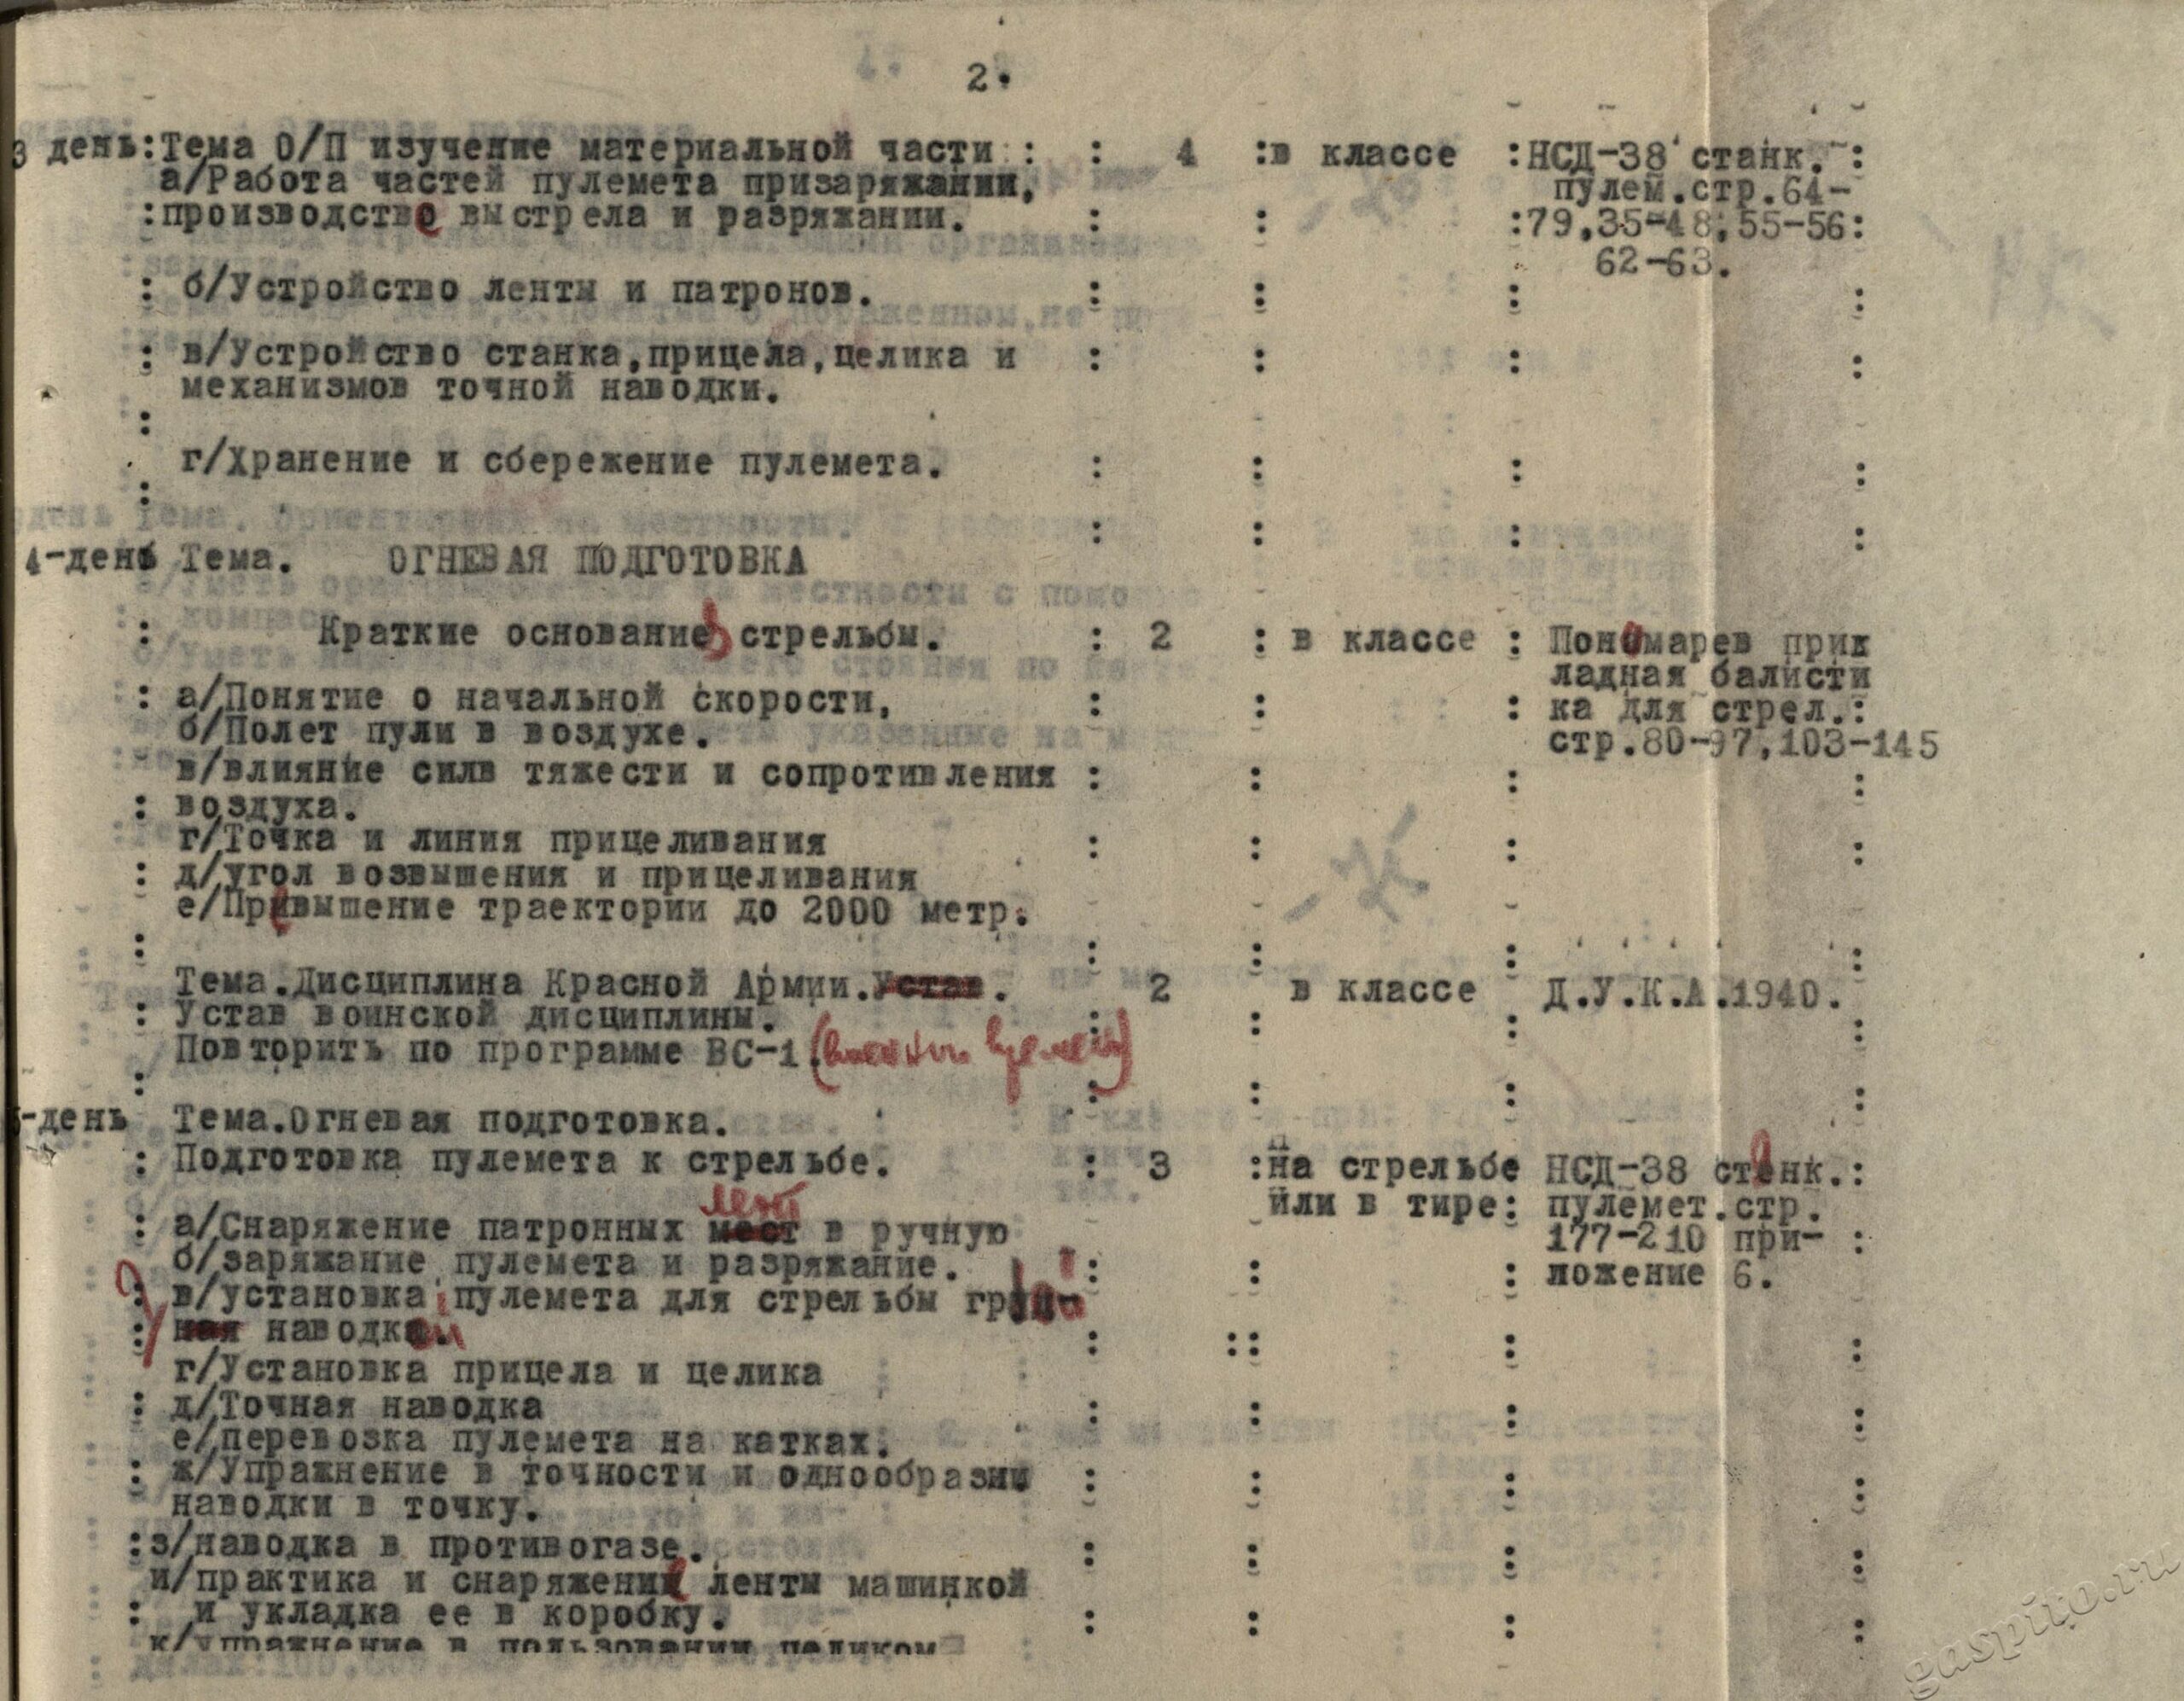 2.
3 день:Тема О/П изучение материальной части : : 4 :в классе :НСД-38 станк. :
а/Работа частей пулемета призаряжании, пулем.стр.64-
:производстве выстрела и разряжании. : : :79,35-48,55-56:
62-63.
: б/Устройство ленты и патронов. : : : :
: в/Устройство станка,прицела,целика и : : : :
механизмов точной наводки.
:
г/Хранение и сбережение пулемета. : : : :
:
: : : :
4-день Тема. ОГНЕВАЯ ПОДГОТОВКА
: Краткие основание стрельбы. : 2 : в классе : Пономарев прик
ладная балисти
: а/Понятие о начальной скорости, : : : ка для стрел.:
б/Полет пули в воздухе. стр.80-97,103-145
в/влияние силв тяжести и сопротивления : : : :
: воздуха.
г/Точка и линия прицеливания : : : :
: д/угол возвышения и прицеливания
е/Превышение траектории до 2000 метр.
: -75
: : : :
Тема.Дисциплина Красной Армии.Устав. 2 в классе Д.У.К.А.1940.
: Устав воинской дисциплины. : : : :
Повторить по программе ВС-1.
: : : : :
-день Тема.Огневая подготовка.
: Подготовка пулемета к стрельбе. : 3 :на стрельбе НСД-38 станк.:
или в тире: пулемет.стр.
лент
: а/Снаряжение патронных мест в ручную 177-210 при- :
б/заряжание пулемета и разряжание. : : : ложение 6.
: в/установка пулемета для стрельбы груб
: ная наводкой : :: : :
г/Установка прицела и целика
: д/Точная наводка : : : :
е/перевозка пулемета на катках.
: ж/Упражнение в точности и однообразии : : : :
наводки в точку.
:з/наводка в противогазе. : : : :
и/практика и снаряжение ленты машинкой
: и укладка ее в коробку. : : : :
к/упражнение в пользовании целиком
gaspito.ru